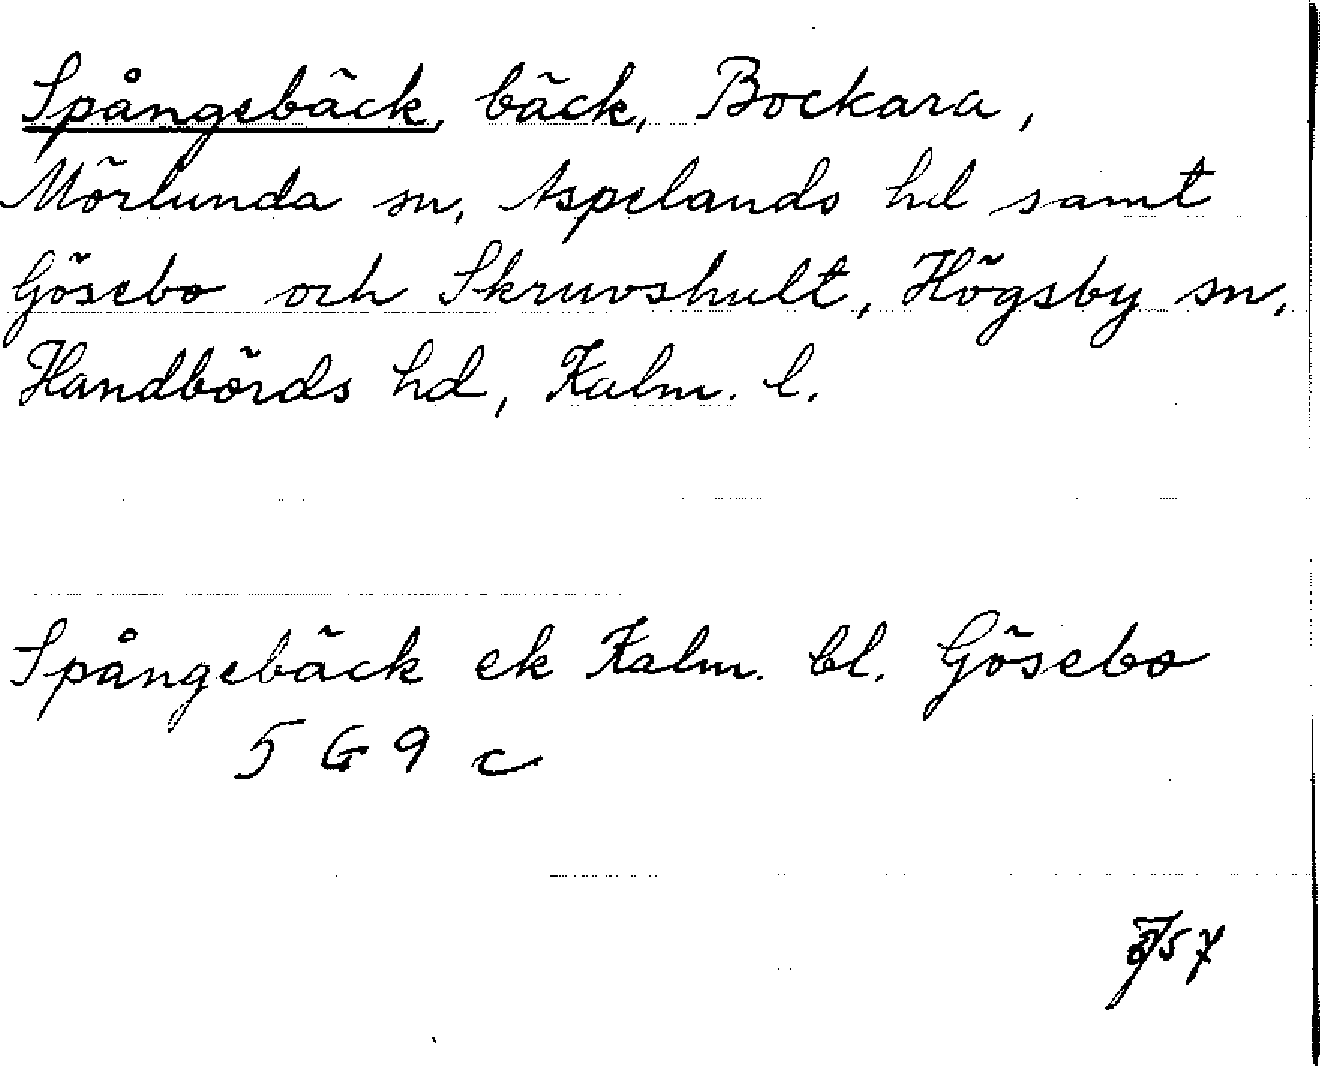 Spångebäck, bäck, Bockara,
Mörlunda sn, Aspelands hd samt
Gösebo och Skruvshult, Högsby sn,
Handbörds hd, Kalm. l.
Spångebäck ek Kalm. bl. Gösebo
5 G 9 c